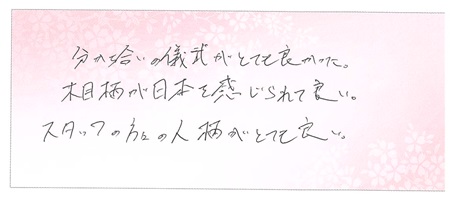 分かち合いの儀式がとても良かった。
木目柄が日本を感じられて良い。
スタッフの方々の人柄がとても良い。